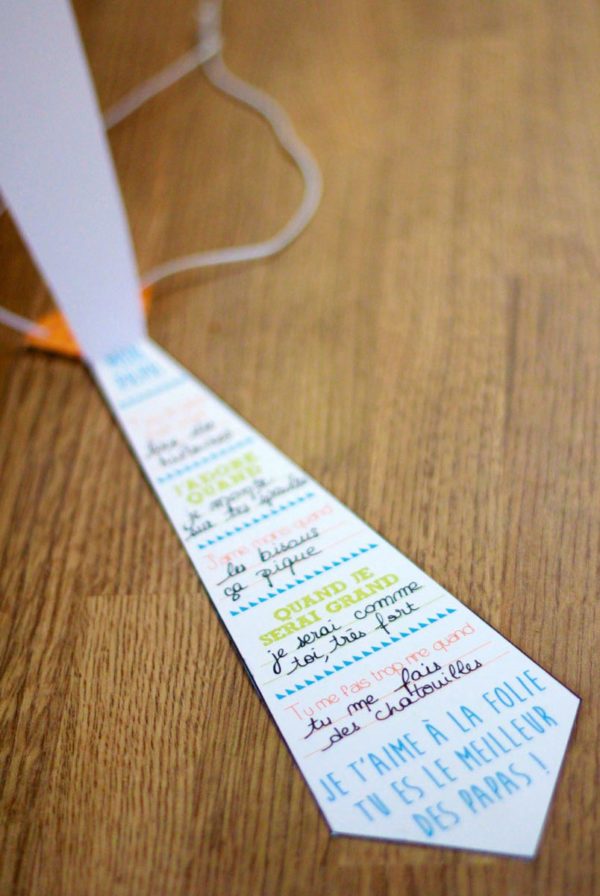 J'ADORE
QUAND
J'aime moins quand
les bisous
ça pique
QUAND JE
SERAI GRAND
je serai comme
toi, très fort
Tu me fais trop rire quand
tu me fais
des chatouilles
JE T'AIME À LA FOLIE
TU ES LE MEILLEUR
DES PAPAS !